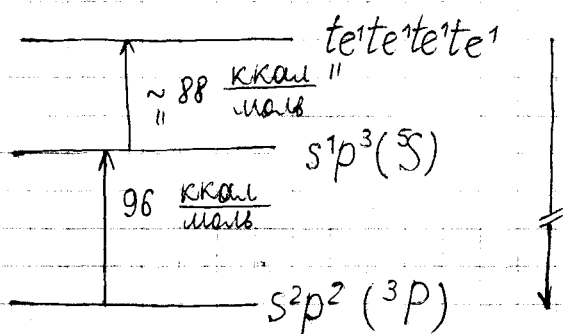 te¹te¹te¹te¹
~ 88 ккал/моль
s¹p³(⁵S)
96 ккал/моль
s²p² (³P)